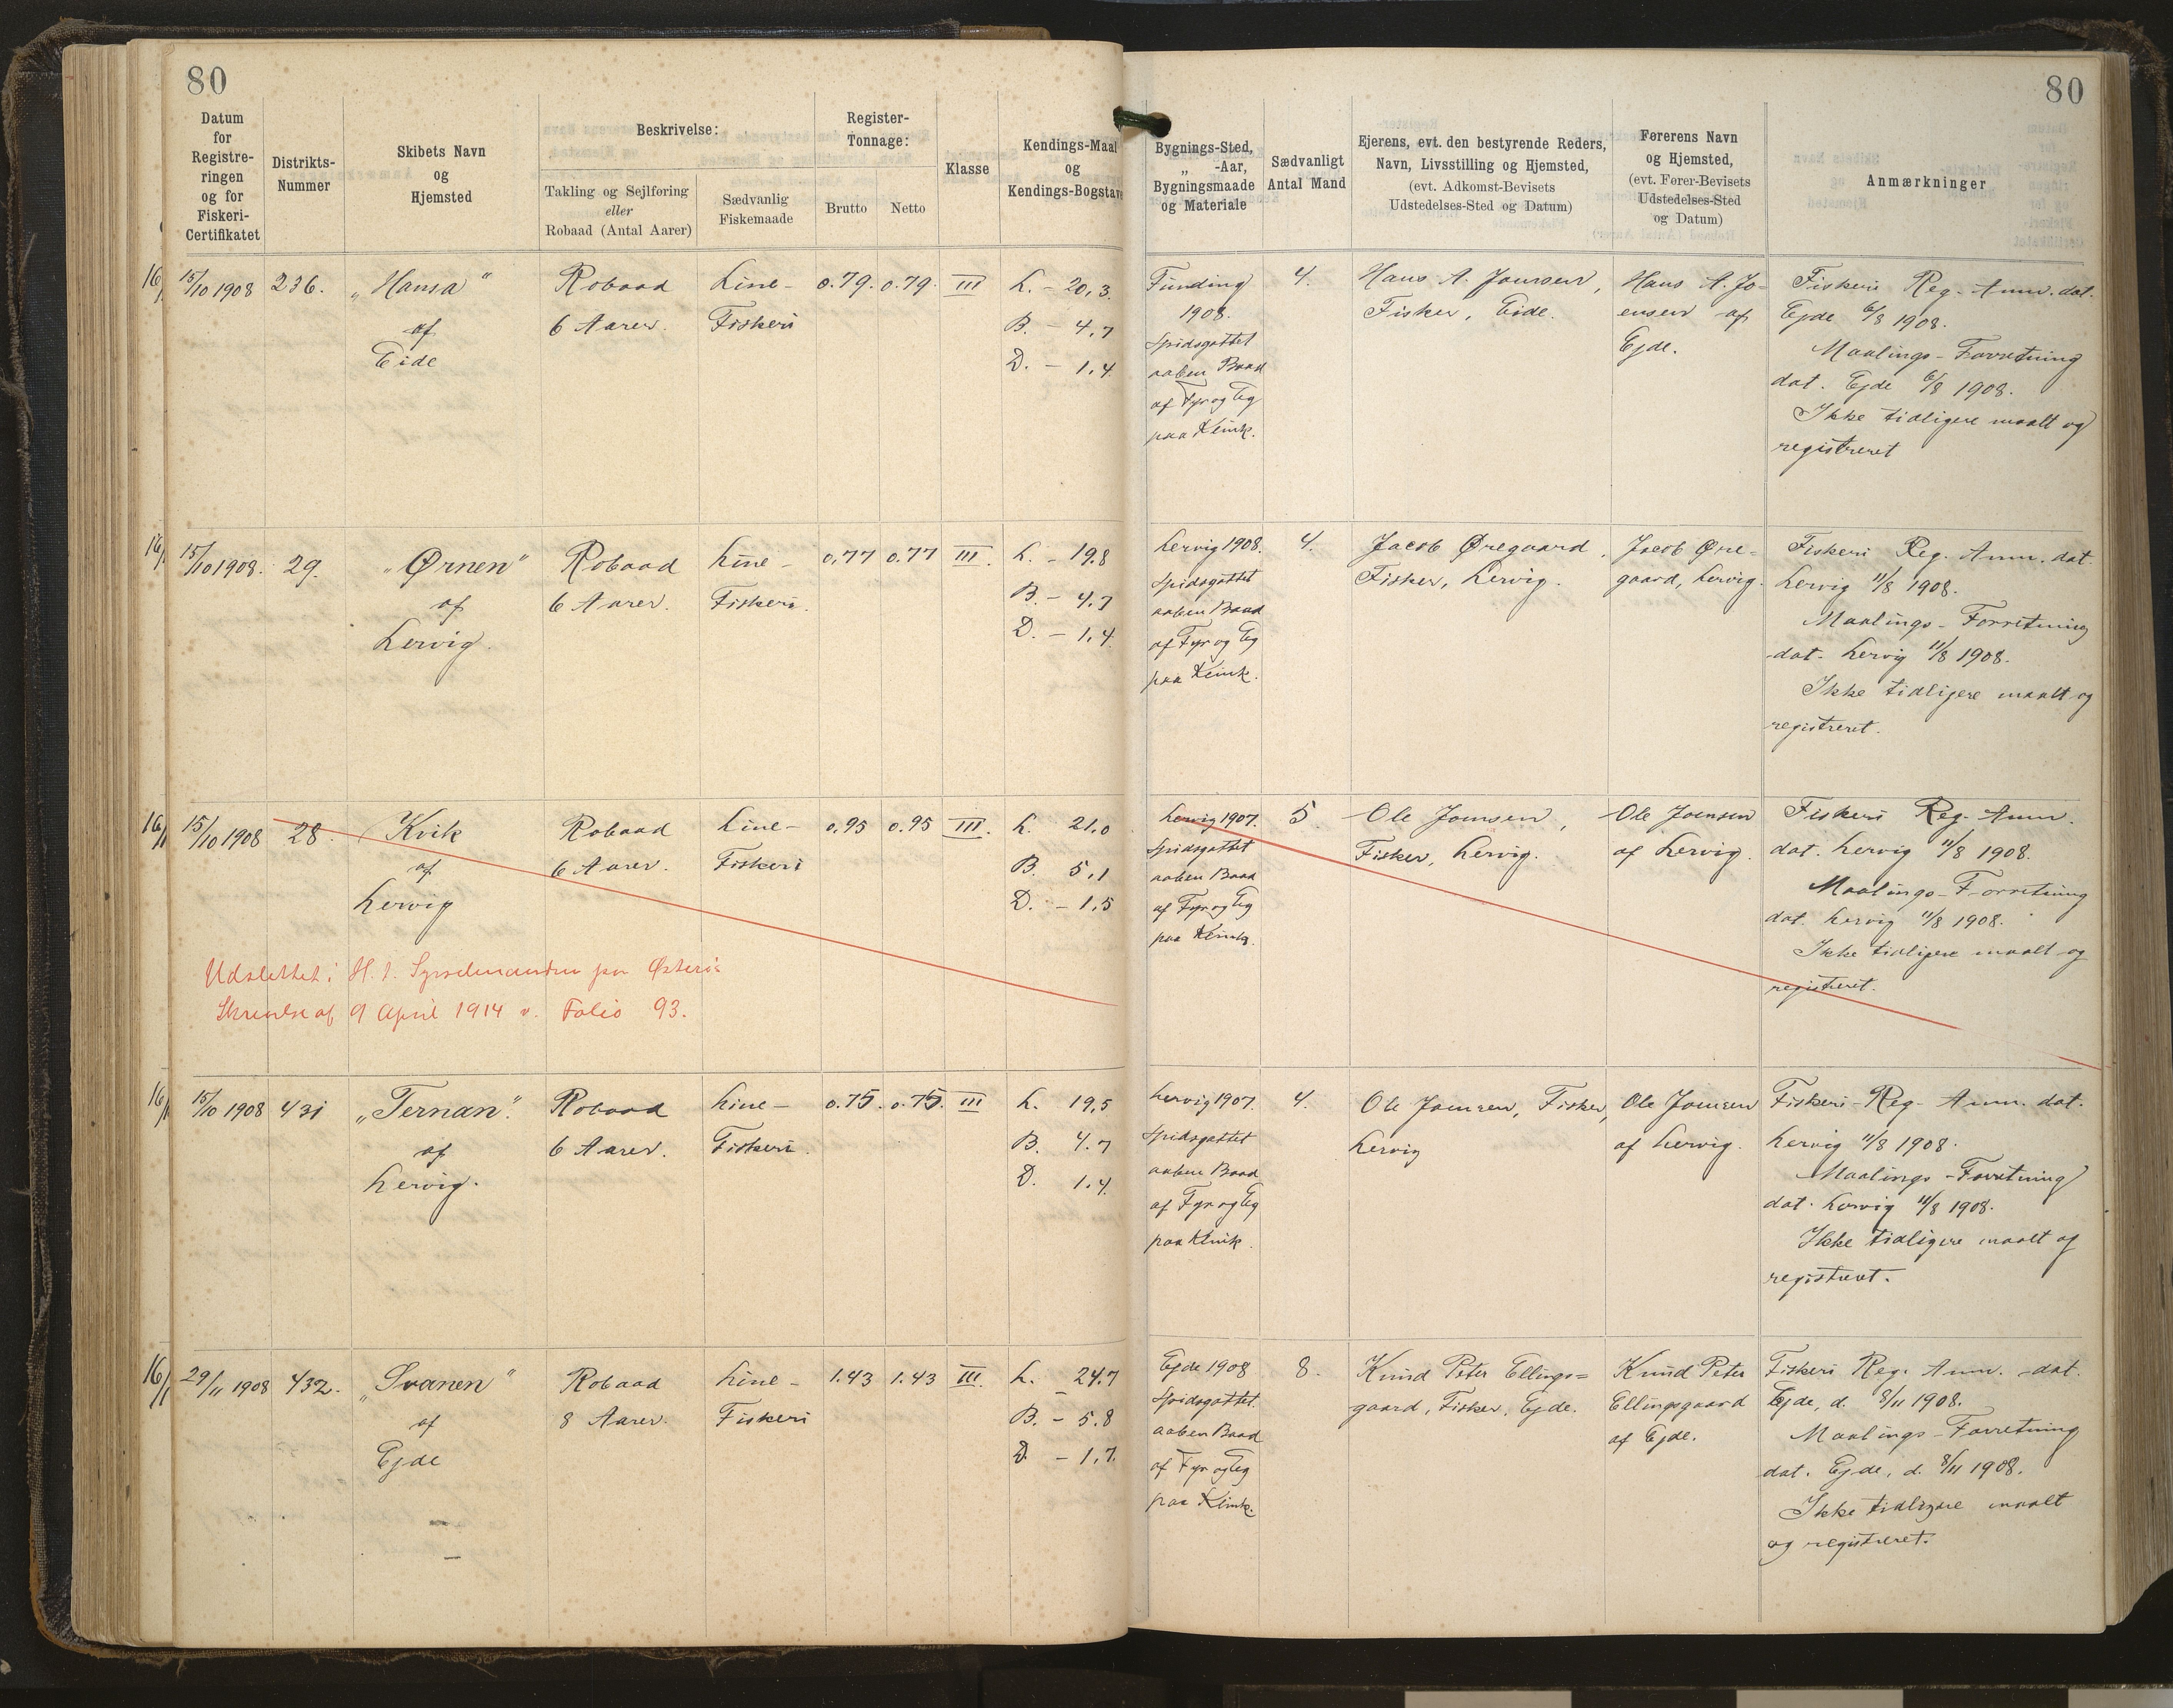 80
80
Datum
for
Registre-
ringen
og for
Fiskeri-
Certifikatet
Distrikts-
Nummer
Skibets Navn
og
Hjemsted
Beskrivelse:
Takling og Sejlføring
eller
Robaad (Antal Aarer)
Sædvanlig
Fiskemaade
Register-
Tonnage:
Brutto
Netto
Klasse
Kendings-Maal
og
Kendings-Bogstave
Bygnings-Sted,
„ -Aar,
Bygningsmaade
og Materiale
Sædvanligt
Antal Mand
Ejerens, evt. den bestyrende Reders,
Navn, Livsstilling og Hjemsted,
(evt. Adkomst-Bevisets
Udstedelses-Sted og Datum)
Førerens Navn
og Hjemsted,
(evt. Fører-Bevisets
Udstedelses-Sted
og Datum)
Anmærkninger
15/10 1908
236.
„Hansa"
af
Eide
Robaad
6 Aarer.
Line-
Fiskeri
0.79.
0.79.
III
L. - 20,3.
B. - 4,7
D. - 1,4
Funding
1908.
Spidsgattet
aaben Baad
af Fyr og Eg
paa Klink.
4.
Hans A. Joensen,
Fisker, Eide.
Hans A. Jo-
ensen af
Ejde.
Fiskeri Reg. Anm. dat.
Ejde 6/8 1908.
Maalings-Forretning
dat. Ejde 6/8 1908.
Ikke tidligere maalt og
registreret
15/10 1908.
29.
„Ørnen"
af
Lervig.
Robaad
6 Aarer.
Line-
Fiskeri.
0,77
0.77
III.
L. - 19.8
B. - 4,7
D. - 1,4
Lervig 1908.
Spidsgattet
aaben Baad
af Fyr og Eg
paa Klink.
4.
Jacob Øregaard,
Fisker, Lervig.
Jacob Øre-
gaard, Lervig.
Fiskeri Reg. Anm. dat.
Lervig 11/8 1908.
Maalings-Forretning
dat. Lervig 11/8 1908.
Ikke tidligere maalt og
registreret.
15/10 1908
28.
Kvik
af
Lervig
Robaad
6 Aarer.
Line-
Fiskeri
0.95
0.95
III.
L. 21,0
B. 5,1
D. - 1,5
Lervig 1907.
Spidsgattet
aaben Baad
af Fyr og Eg
paa Klink.
5.
Ole Joensen,
Fisker, Lervig.
Ole Joensen
af Lervig.
Fiskeri Reg. Anm.
dat. Lervig 11/8 1908.
Maalings-Forretning
dat. Lervig 11/8 1908.
Ikke tidligere maalt og
registreret.
Udslettet i H. t. Sysselmanden paa Østerøs
Skrivelse af 9 April 1914 v. Folio 93.
15/10 1908
431
„Ternan".
af
Lervig.
Robaad
6 Aarer.
Line-
Fiskeri.
0.75.
0.75.
III
L. 19,5
B. 4.7
D. 1.4.
Lervig 1907.
Spidsgattet
aaben Baad
af Fyr og Eg
paa Klink.
4.
Ole Joensen, Fisker,
Lervig
Ole Joensen
af Lervig.
Fiskeri-Reg. Anm. dat.
Lervig 11/8 1908.
Maalings-Forretning
dat. Lervig 11/8 1908.
Ikke tidligere maalt og
registreret.
29/11 1908
432.
„Svanen"
af
Ejde
Robaad
8 Aarer.
Line-
Fiskeri
1.43
1.43
III.
L. - 24.7
B. - 5.8
D. - 1,7.
Ejde 1908
Spidsgattet.
aaben Baad
af Fyr og Eg
paa Klink.
8.
Knud Peter Ellings=
gaard, Fisker, Ejde.
Knud Peter
Ellingsgaard
af Ejde.
Fiskeri Reg. Anm. dat.
Ejde, d. 8/11 1908.
Maalings-Forretning
dat. Ejde, d. 8/11 1908.
Ikke tidligere maalt
og registreret.